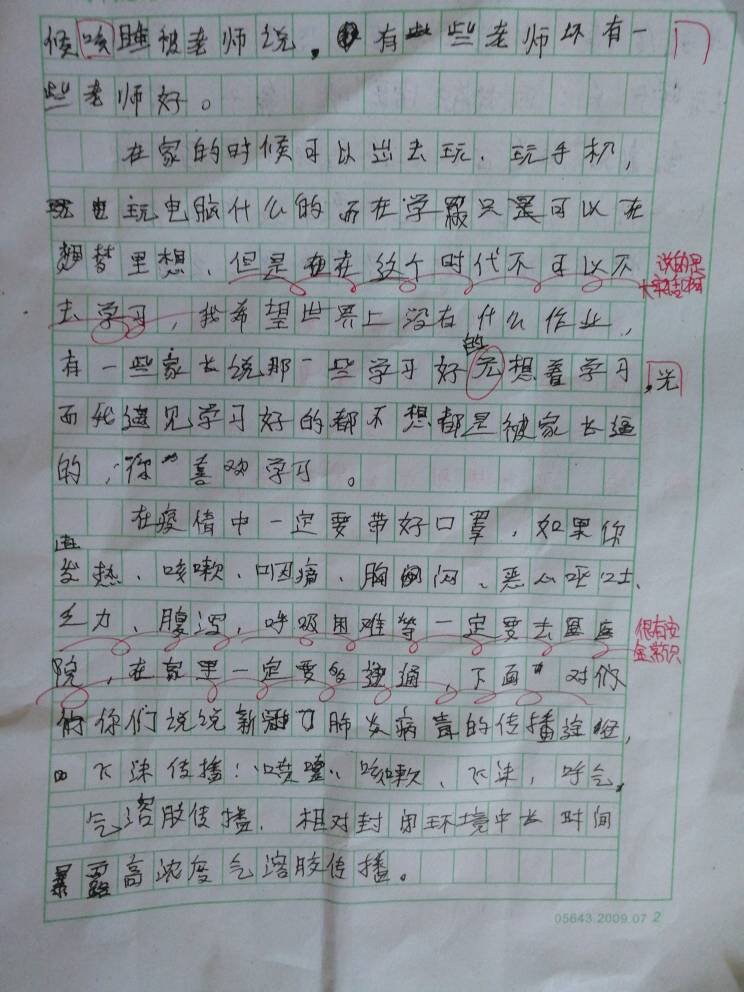 候咳睡被老师说，有一些老师坏有一
些老师好。
在家的时候可以出去玩、玩手机，
玩电脑什么的而在学 只是可以在
想 里想，但是现在这个时代不可以不
说的是
大实话啊
去学习，我希望世界上没有什么作业，
的
有一些家长说那一些学习好 想着学习
，光
而死 见学习好的都不想都是被家长逼
的，你 喜欢学习。
在疫情中一定要带好口罩，如果你
发热、咳嗽、咽痛、胸闷、恶心呕吐、
乏力、腹泻，呼吸困难等一定要去医
很有安
全常识
院，在家里一定要多通通，下面 对你
你们说说新冠 肺炎病毒的传播途径，
飞沫传播：喷嚏、咳嗽、飞沫，呼气，
气溶胶传播，相对封闭环境中长时间
暴露高浓度气溶胶传播。
05643.2009.07 2